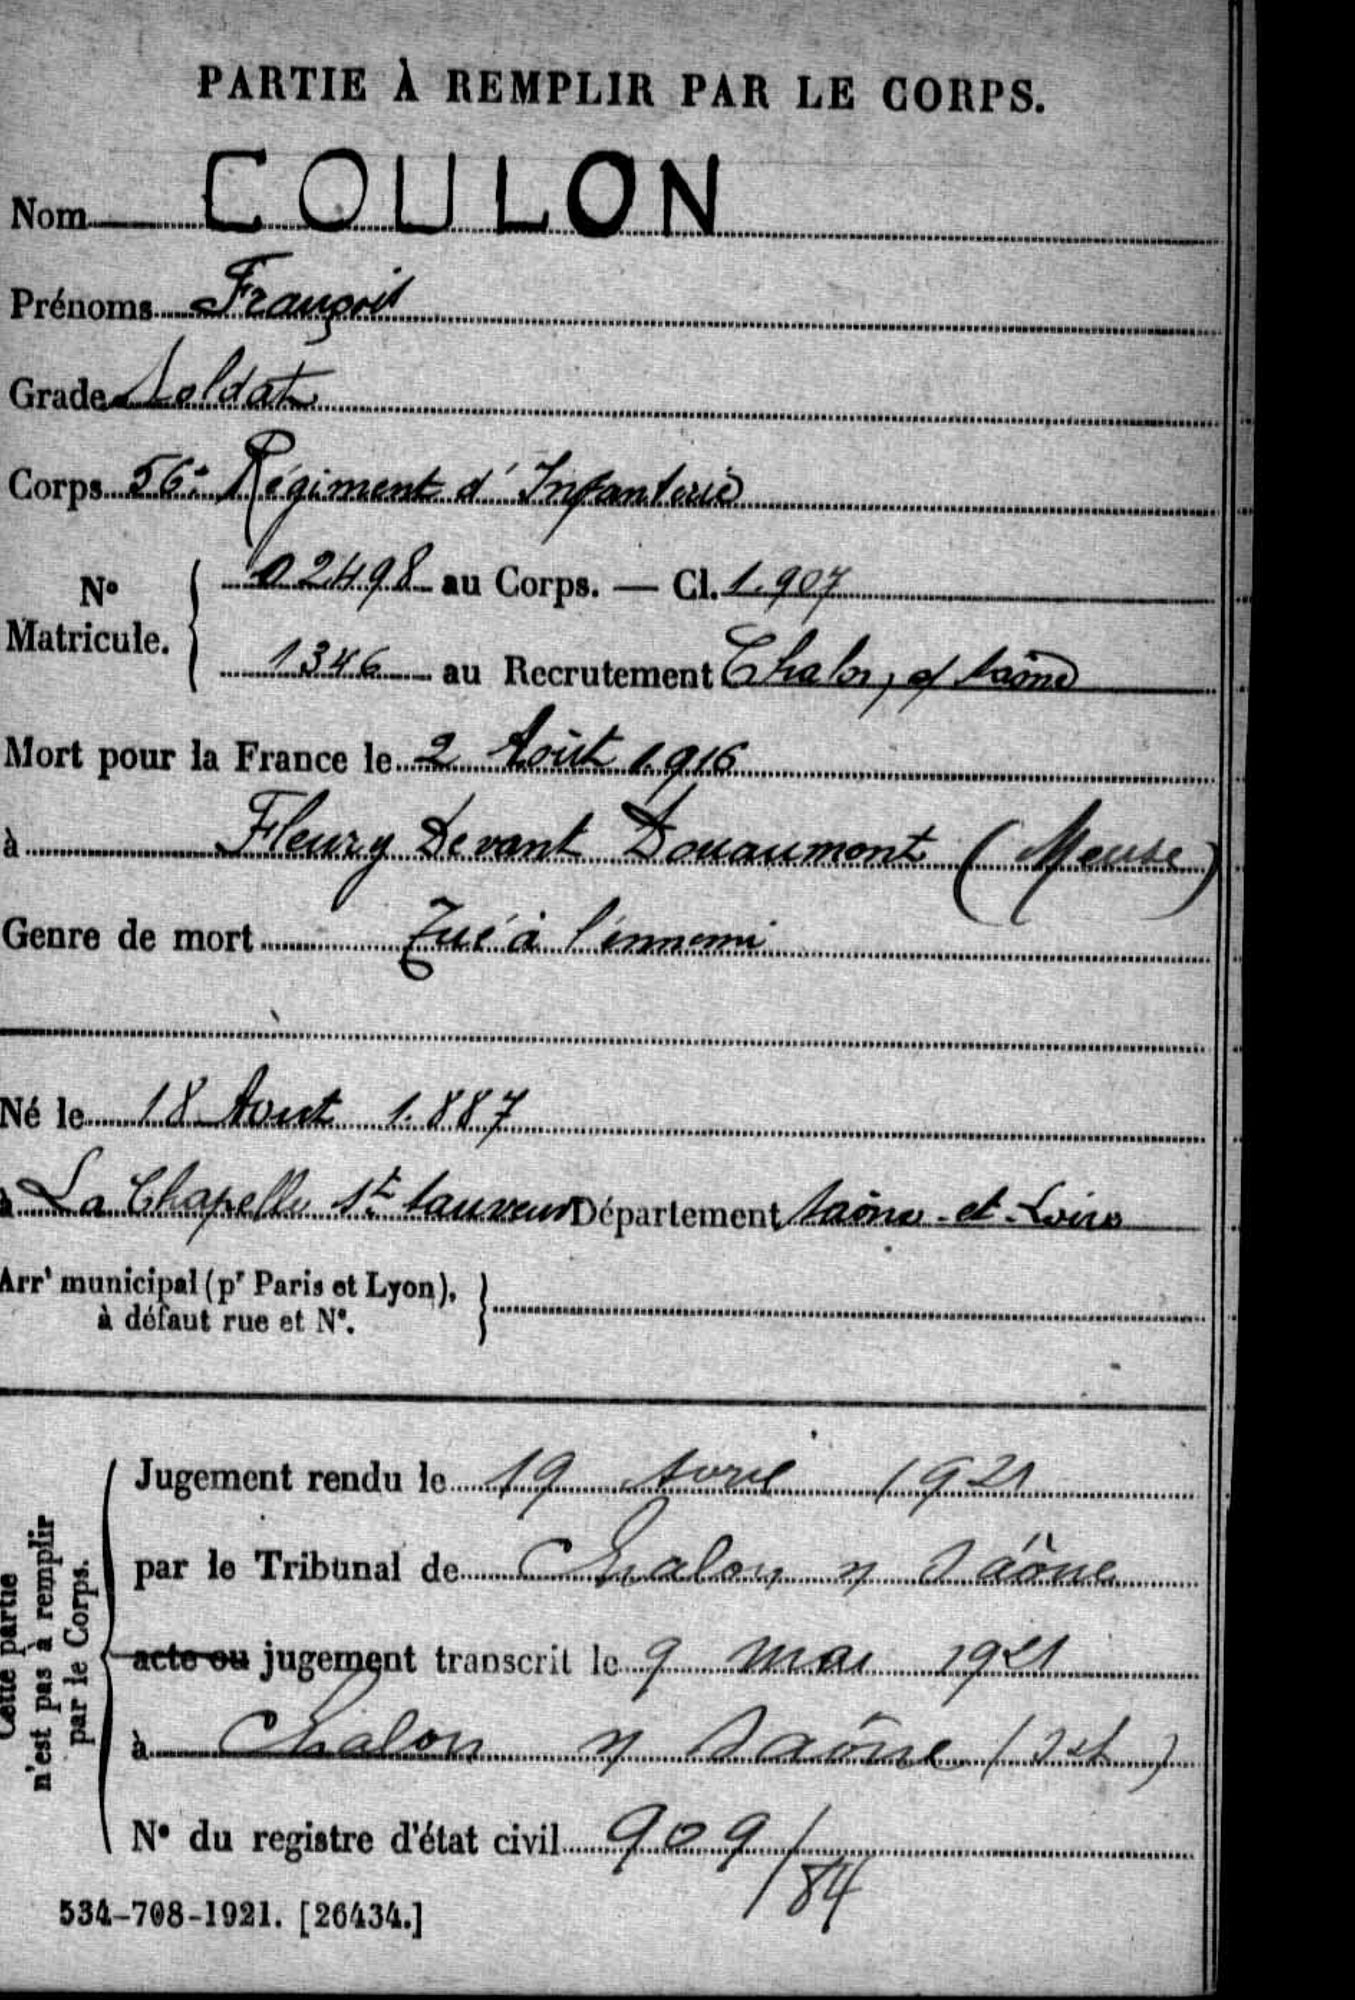 PARTIE À REMPLIR PAR LE CORPS.
Nom COULON
Prénoms François
Grade Soldat
Corps 56e Régiment d'Infanterie
No Matricule.
02498 au Corps. — Cl. 1.907
1346 au Recrutement Chalon s/ Saône
Mort pour la France le 2 Août 1.916
à Fleury Devant Douaumont (Meuse)
Genre de mort Tué à l'ennemi
Né le 18 Aout 1.887
à La Chapelle St Sauveur Département Saône-et-Loire
Arrt municipal (pr Paris et Lyon),
à défaut rue et No.
Cette partie
n'est pas à remplir
par le Corps.
Jugement rendu le 19 Avril 1921
par le Tribunal de Chalon s/ Saône
acte ou jugement transcrit le 9 mai 1921
à Chalon s/ Saône (S et L)
No du registre d'état civil 909/84
534-708-1921. [26434.]